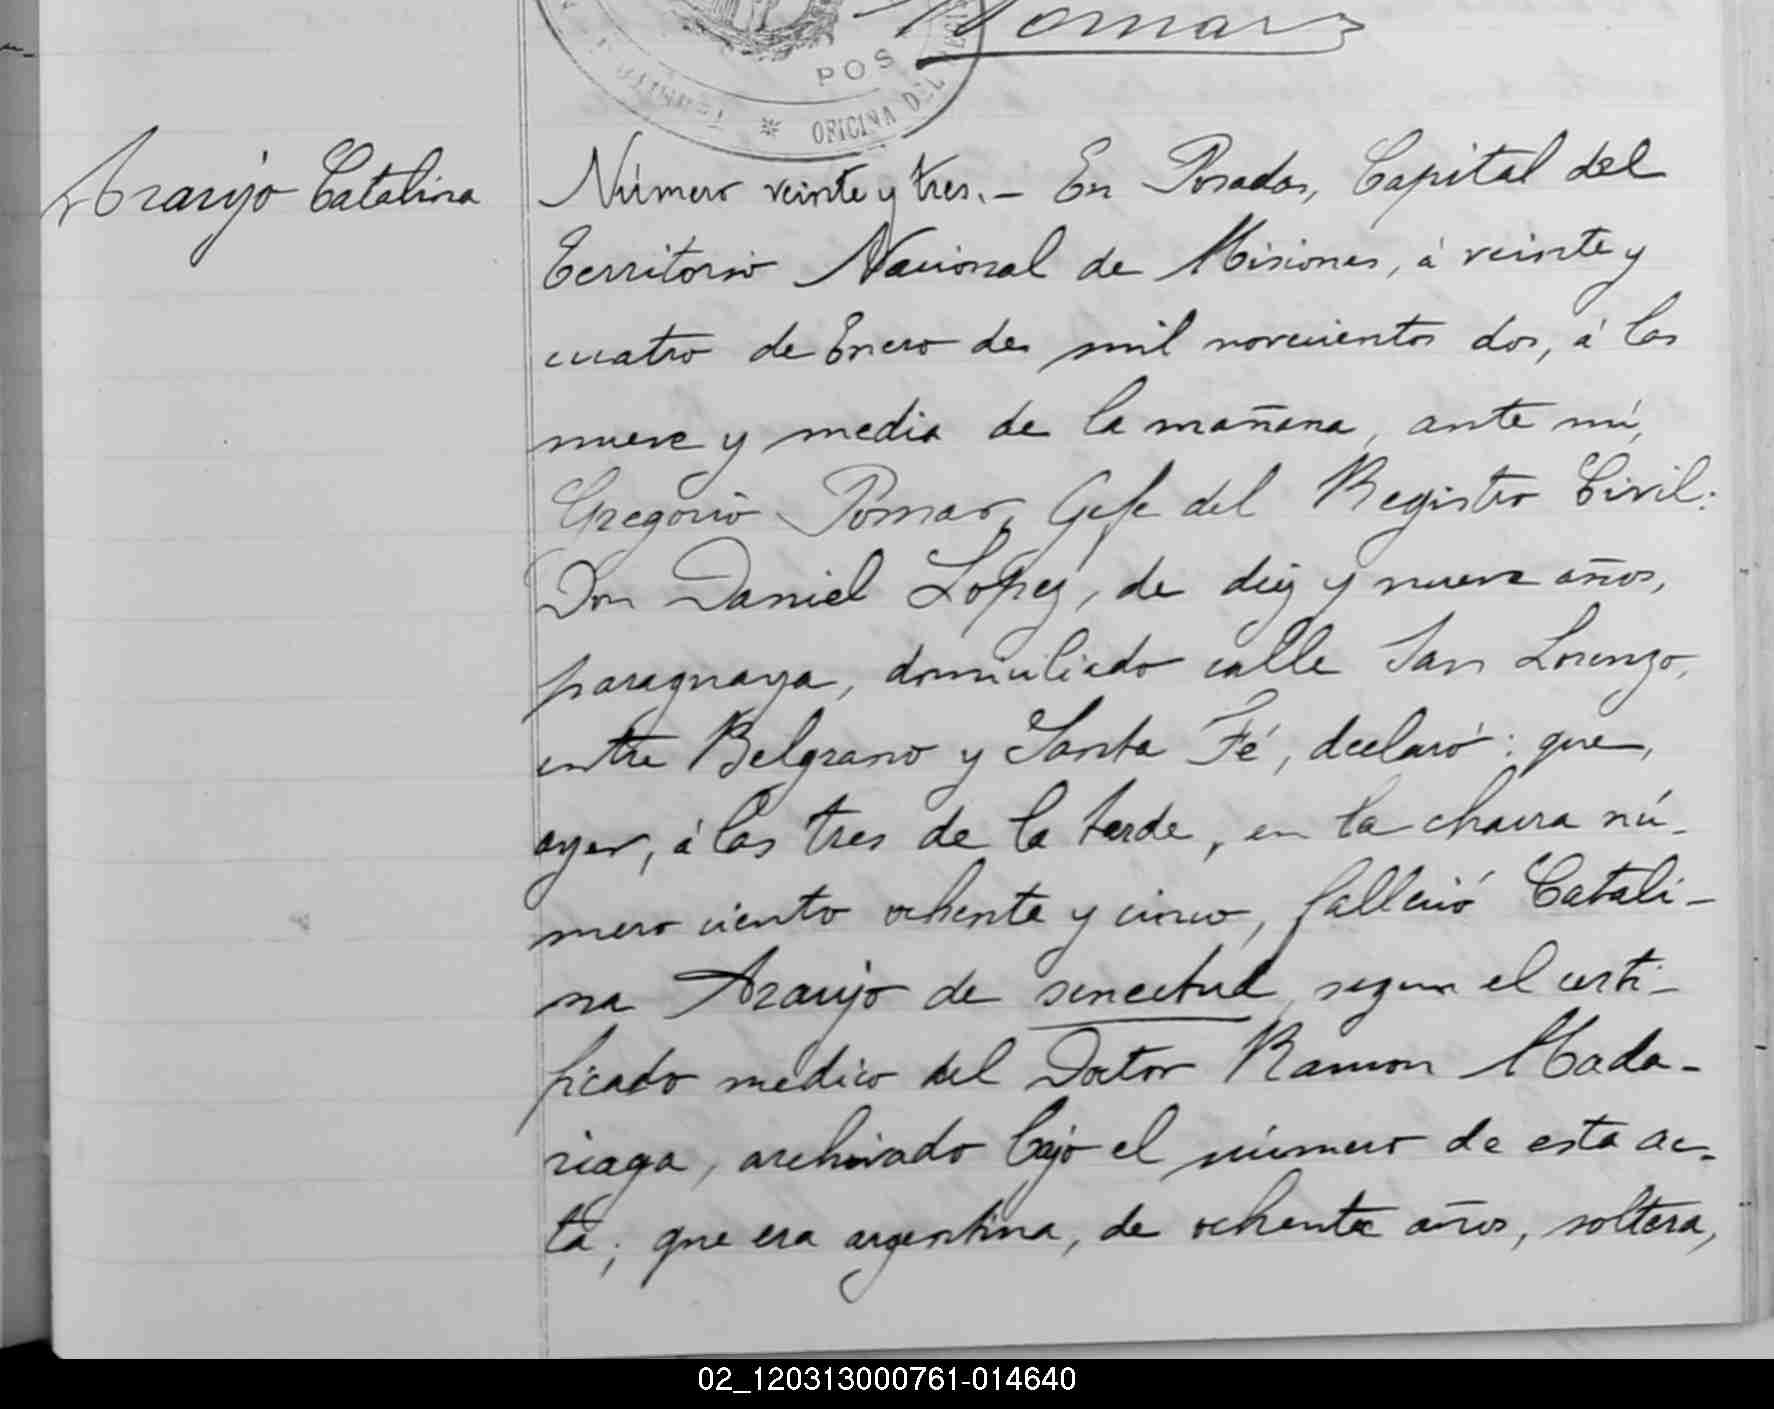 Pomar
POS
OFICINA DEL
Araujo Catalina
Número veinte y tres.- En Posadas, Capital del
Territorio Nacional de Misiones, á veinte y
cuatro de Enero de mil novecientos dos, á las
nueve y media de la mañana, ante mí,
Gregorio Pomar, Gefe del Registro Civil:
Don Daniel Lopez, de diez y nueve años,
paraguaya, domiciliado calle San Lorenzo,
entre Belgrano y Santa Fé, declaró: que,
ayer, á las tres de la tarde, en la chacra nú-
mero ciento ochenta y cinco, falleció Catali-
na Araujo de senectud, segun el certi-
ficado medico del Doctor Ramon Mada-
riaga, archivado bajo el número de esta ac-
ta; que era argentina, de ochenta años, soltera,
02_120313000761-014640